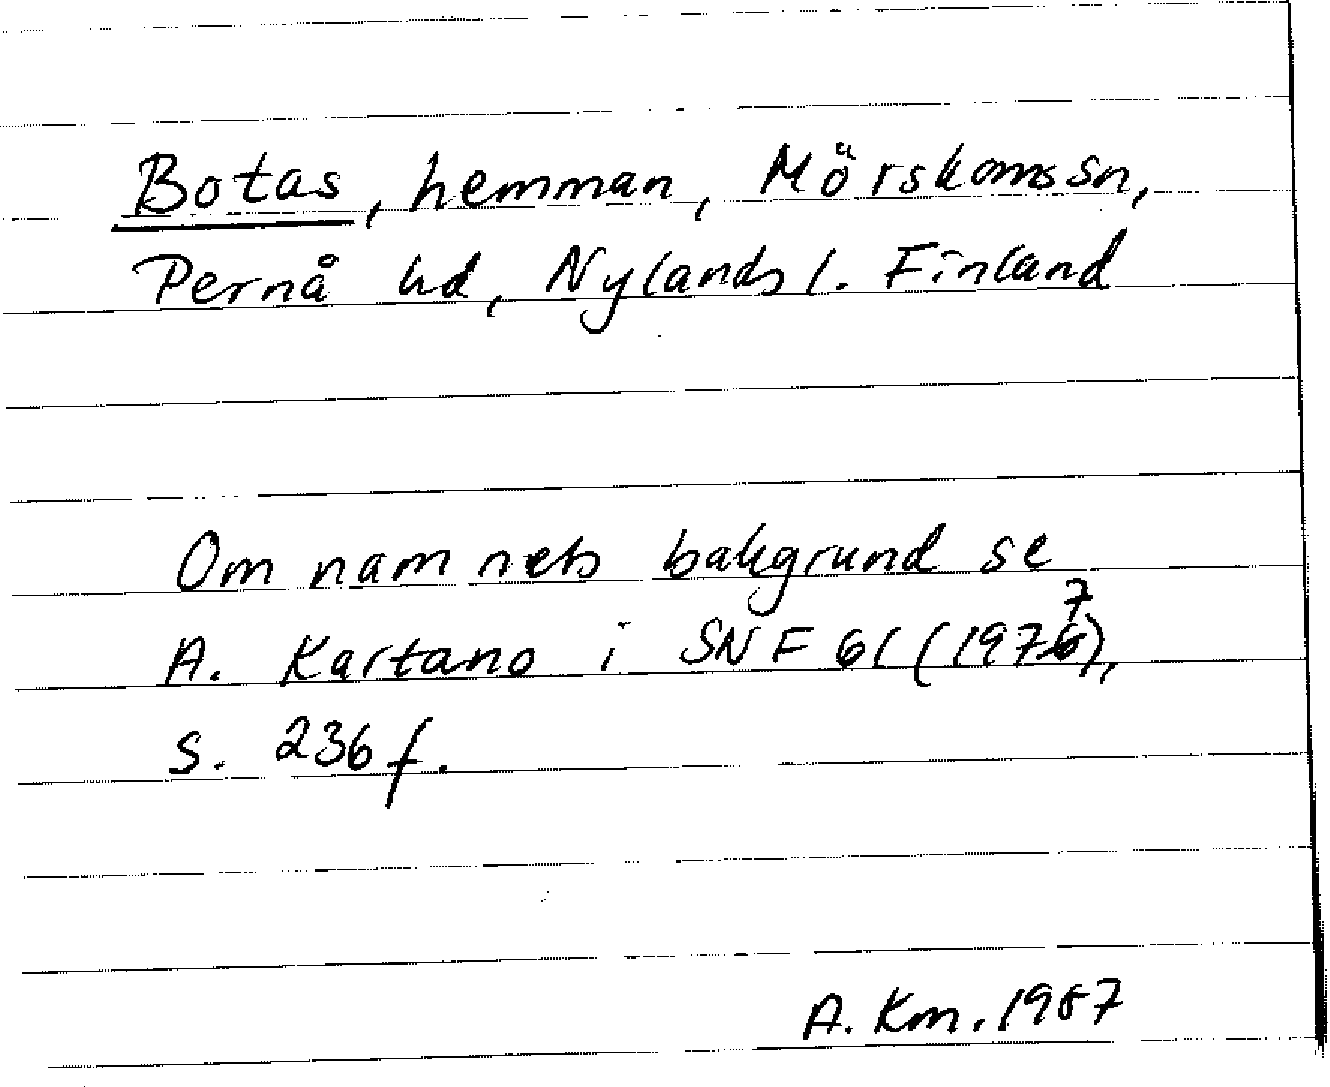 Botas, hemman, Mörskoms sn,
Pernå hd, Nylands l. Finland
Om namnets bakgrund se
A. Kartano i SNF 61 (1977),
s. 236 f.
A. Km. 1987